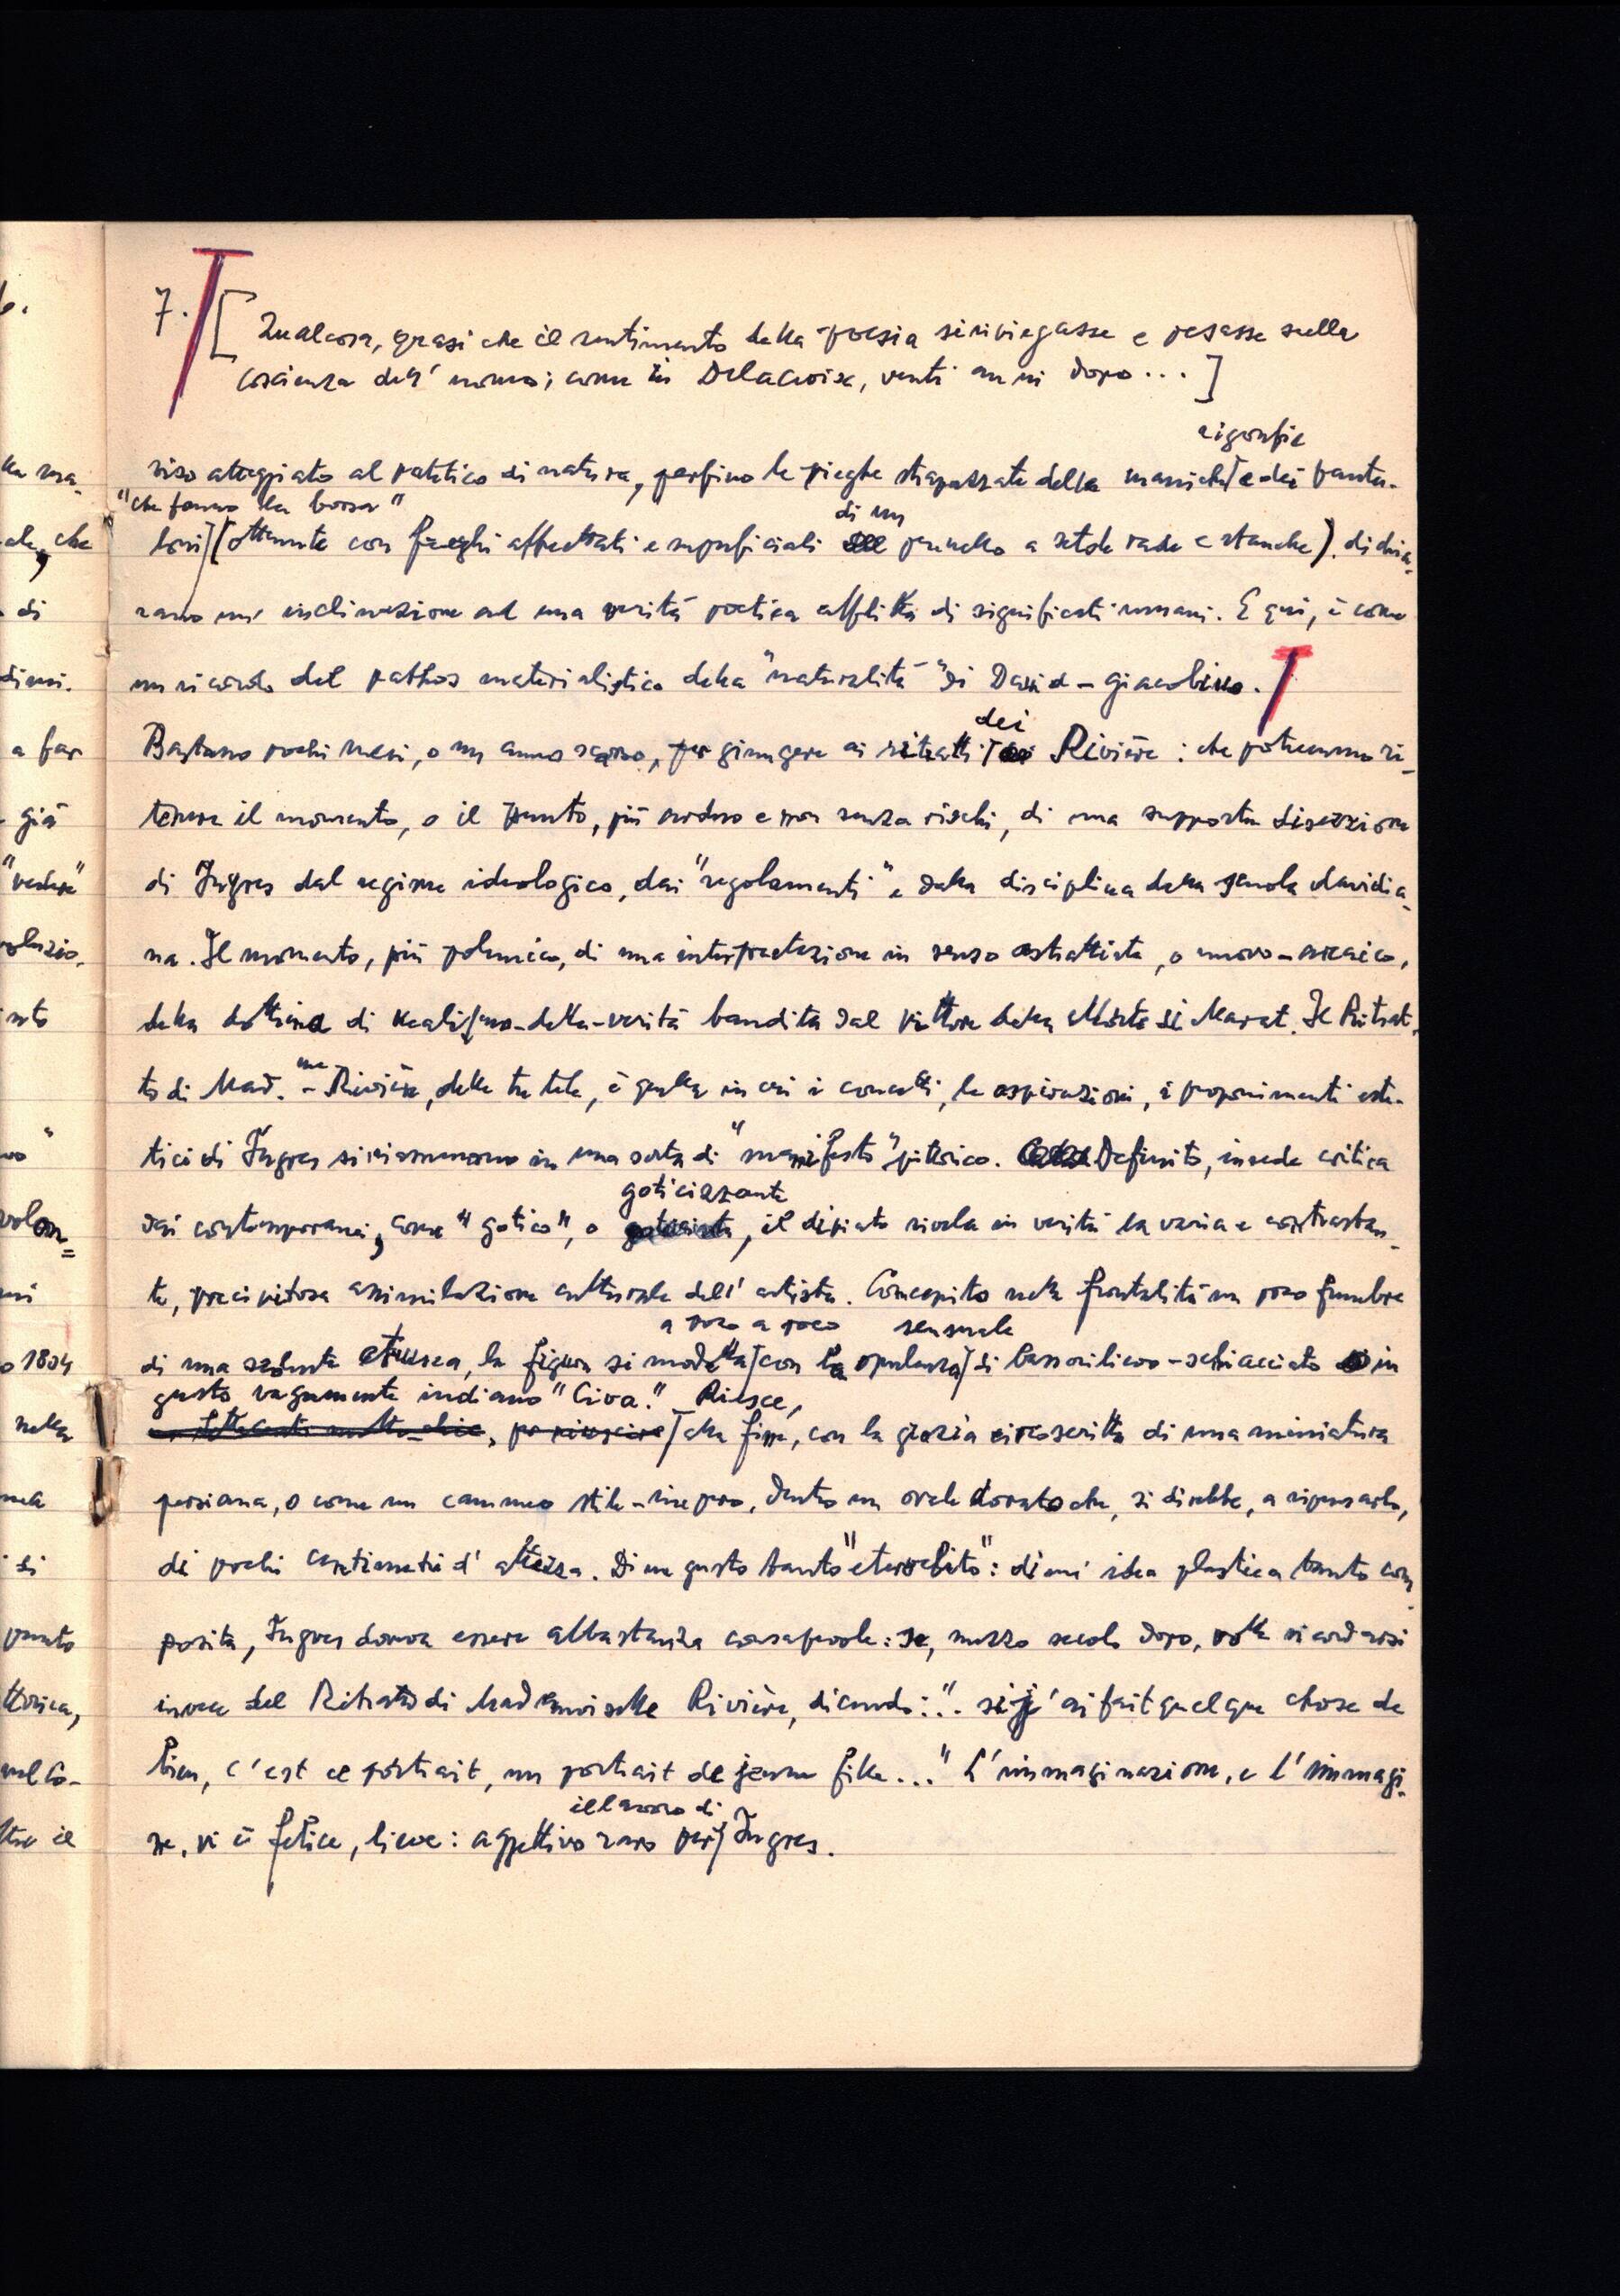 7. [ Qualcosa, quasi che il sentimento della poesia si ripiegasse e pesasse sulla
coscienza dell' uomo; come in Delacroix, venti anni dopo ... ]
rigonfie
viso atteggiato al patetico di natura, perfino le pieghe strapazzate della maniche e dei panta-
"che fanno la borsa"
di un
loni (ottenute con freghi affrettati e superficiali pennello a setole rade e stanche). dichia-
rano un' inclinazione ad una verità poetica afflitta di significati umani. E qui, è come
un ricordo del pathos materialistico della "naturalità" di David-giacobino.
dei
Bastano pochi mesi, o un anno scarso, per giungere ai ritratti Rivière: che potremmo ri-
tenere il momento, o il punto, più arduo e non senza rischi, di una supposta diserzione
di Ingres dal regime ideologico, dai "regolamenti" e dalla disciplina della scuola davidia-
na. Il momento, più polemico, di una interpretazione in senso astrattista, o nuovo-arcaico,
della dottrina di realismo-della-verità bandita dal pittore della Morte di Marat. Il Ritrat-
to di Mad.me - Rivière, delle tre tele, è quella in cui i concetti, le aspirazioni, i proponimenti este-
tici di Ingres si riassumono in una sorta di "manifesto" pittorico. Definito, in sede critica
goticizzante
dai contemporanei, come "gotico", o , il dipinto rivela in verità la varia e contrastan-
te, precipitosa assimilazione culturale dell' artista. Concepito nella frontalità un poco funebre
a poco a poco sensuale
di una seduta etrusca, la figura si modella con la opulenza di bassorilievo-schiacciato in
gusto vagamente indiano "Civa". Riesce,
, per riuscire alla fine, con la grazia circoscritta di una miniatura
persiana, o come un cammeo stile-impero, dentro un ovale dorato che, si direbbe, a ripensarlo,
di pochi centimetri d' altezza. Di un gusto tanto "eteroclito": di un' idea plastica tanto com-
posita, Ingres doveva essere abbastanza consapevole: se, mezzo secolo dopo, volle ricordarsi
invece del Ritratto di Mademoiselle Rivière, dicendo: ".. si j' ai fait quelque chose de
bien, c'est ce portrait, un portrait de jeune fille..." L'immaginazione, e l'immagi-
il lavoro di
ne, vi è felice, lieve: aggettivo raro per Ingres.
6.
di
a far
già
"vedere"
1804
nella
di
punto